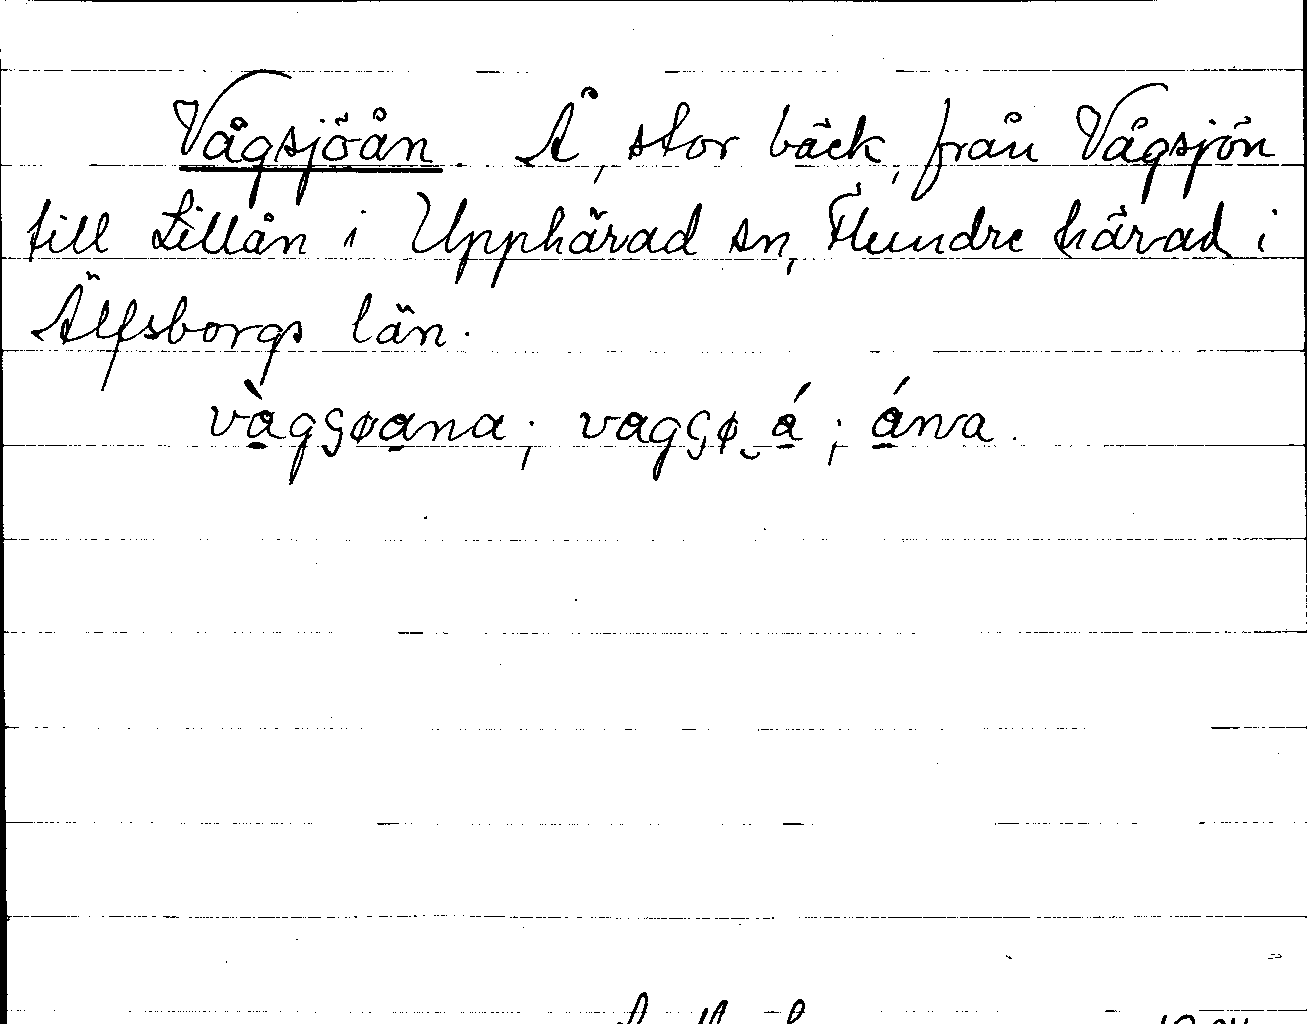 Vågsjöån. Å, stor bäck, från Vågsjön
till Lillån i Upphärad sn, Flundre härad i
Älfsborgs län.
và̱gʂøa̱na; vagʂø‿á̱; á̱nva.